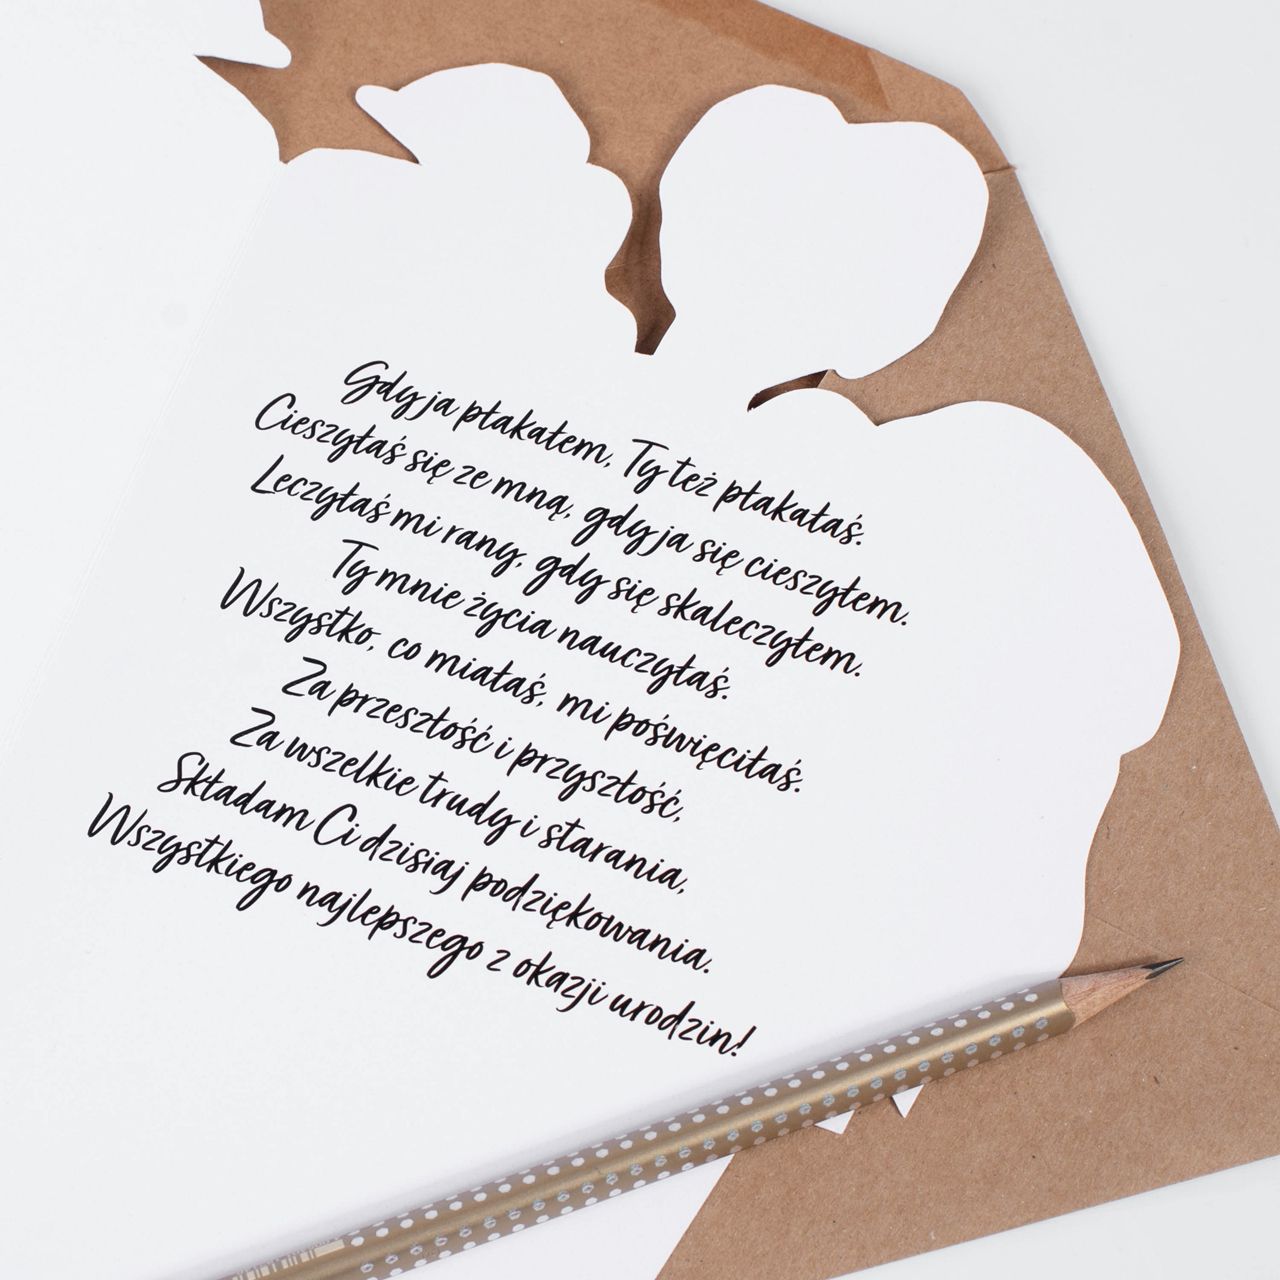 Gdy ja płakałem, Ty też płakałaś.
Cieszyłaś się ze mną, gdy ja się cieszyłem.
Leczyłaś mi rany, gdy się skaleczyłem.
Ty mnie życia nauczyłaś.
Wszystko, co miałaś, mi poświęciłaś.
Za przeszłość i przyszłość,
Za wszelkie trudy i starania,
Składam Ci dzisiaj podziękowania.
Wszystkiego najlepszego z okazji urodzin!